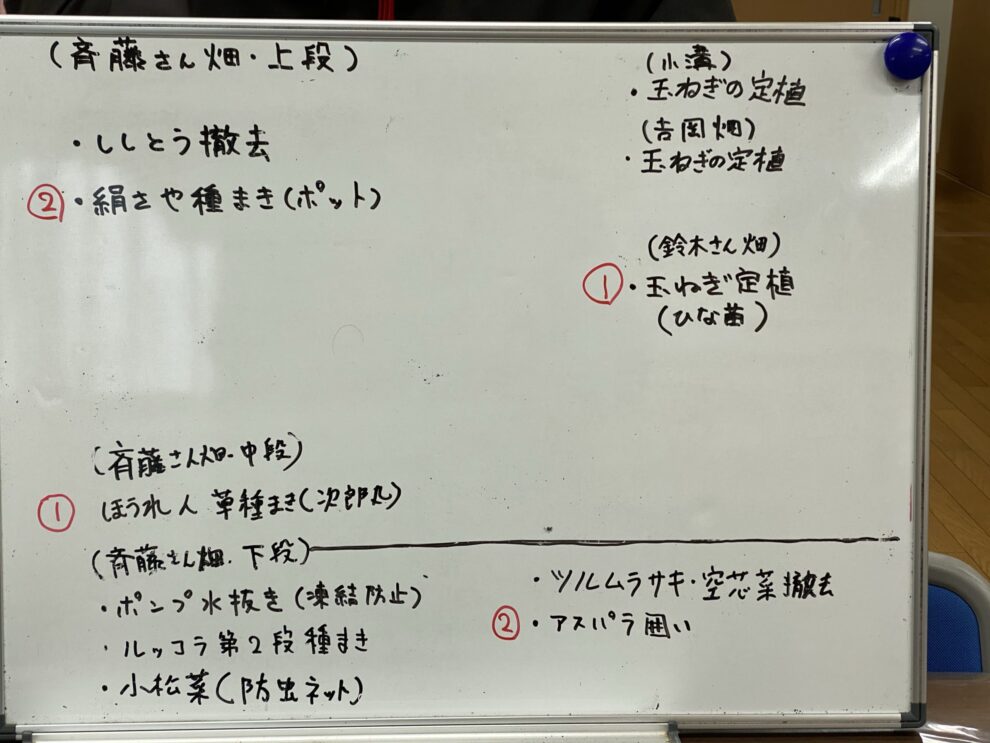 (斉藤さん畑・上段)
・ししとう撤去
② ・絹さや種まき(ポット)
(小溝)
・玉ねぎの定植
(吉岡畑)
・玉ねぎの定植
(鈴木さん畑)
① ・玉ねぎ定植
(ひな苗)
(斉藤さん畑・中段)
① ほうれん草種まき(次郎丸)
(斉藤さん畑・下段)
・ポンプ水抜き(凍結防止)
・ルッコラ第2段種まき
・小松菜(防虫ネット)
・ツルムラサキ・空芯菜撤去
② ・アスパラ囲い